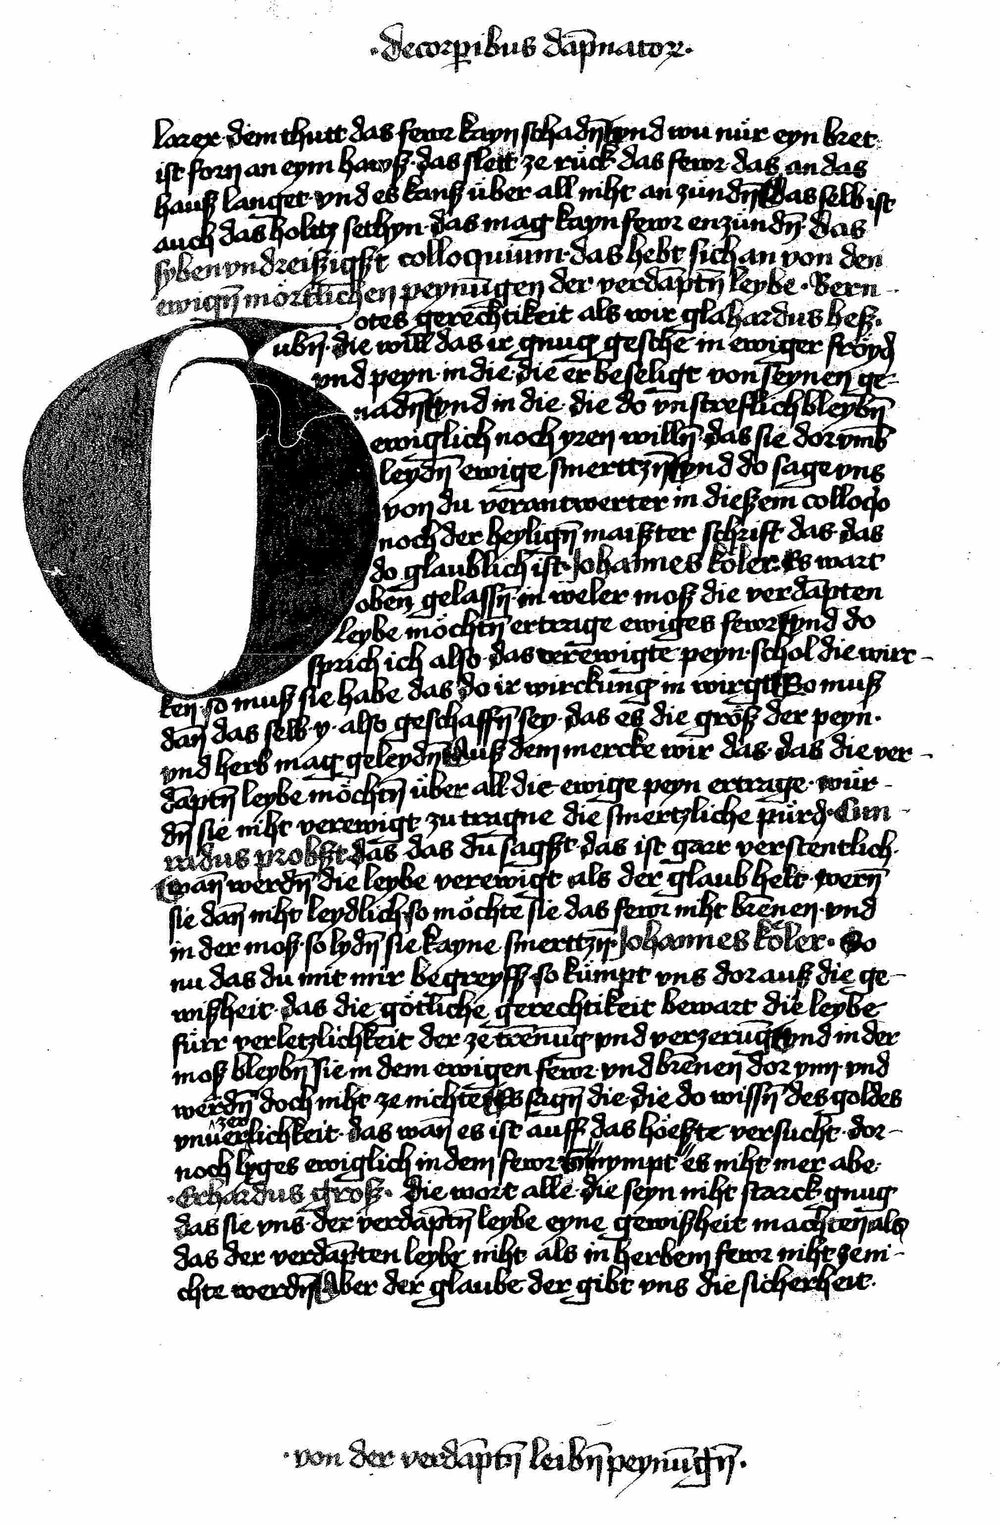 ·decorꝑibus dāp̄natoꝝ·
lorex· dem thutt das fewr kayn schadn̄ vnd wu nür eyn bret·
ist forn an eym hawß· das slett ze rück· das fewr das an das
hauß langet· vnd es kanß über all niht an zündn̄ Das selb ist
auch das holtz sethyn· das mag kayn fewr enzündn̄· das
syben vndreißigst colloquium· das hebt sich an von den
ewign̄ mörtlichen peynūgen der verdāptn̄ leybe· Bern-
otes gerechtikeit als wir gla hardus heß·
ubn̄· die will das ir gnug geschē in ewiger fröyd
vnd peyn· in die· die er beseligt von seynen ge-
nadn̄ vnd in die· die do vnstreflich bleybn̄
ewiglich noch yren willn̄· das sie dorymb
leydn̄ ewige smerttzn̄ vnd do sage vns
von du verantwerter in dießem colloqo
noch der heylign̄ maißter schrift das das
do glaublich ist· Johannes köler· Es wart
oben gelassn̄· in weler moß die verdāpten
leybe möchtn̄ ertrage ewiges fewr vnd do
sprich ich also· das verewigte peyn· schol die wirc-
ken· so muß sie habe das do ir wirckung in wirgt So muß
dan̄ das selb y· also geschaffn̄ sey· das es die größ der peyn·
vnd herb mag geleydn̄ Auß dem mercke wir das· das die ver-
dāptn̄ leybe möchtn̄ über all die ewige peyn ertrage· wür-
dn̄ sie niht verewigt zu tragne die smertzliche pürd· Cun-
radus probst· das das du sagßt· das ist garr verstentlich·
wan̄ werdn̄ die leybe verewigt als der glaub helt· wern̄
sie dan̄ niht leydlich· so möchte sie das fewr niht brēnen· vnd
in der moß· so lydn̄ sie kayne smerttzn̄· Johannes köler· So
nu das du mit mir begreyfß· so kümpt vns dorauß die ge-
wißheit· das die götliche gerechtikeit bewart die leybe
fürr verletzlichkeit der ze trēnūg vnd verzerūg vnd in der
moß bleybn̄ sie in dem ewigen fewr· vnd brēnen dor ynn· vnd
werdn̄ doch niht ze nichte Es sagn̄ die· die do wissn̄ des goldes
vnuerzerlichkeit· das wan̄ es ist auff das höeßte versucht· dor-
noch lyges ewiglich in dem fewr nympt es niht mer abe·
·Erhardus groß· die wort alle· die seyn niht starck gnug
das sie vns· der verdāptn̄ leybe eyne gewißheit machten als
das der verdāpten leybe niht als in herbem fewr niht zeni-
chte werdn̄ Aber der glaube der gibt vns die sicherheit·
·von der verdāptn̄ leibn̄ peynūgn̄·